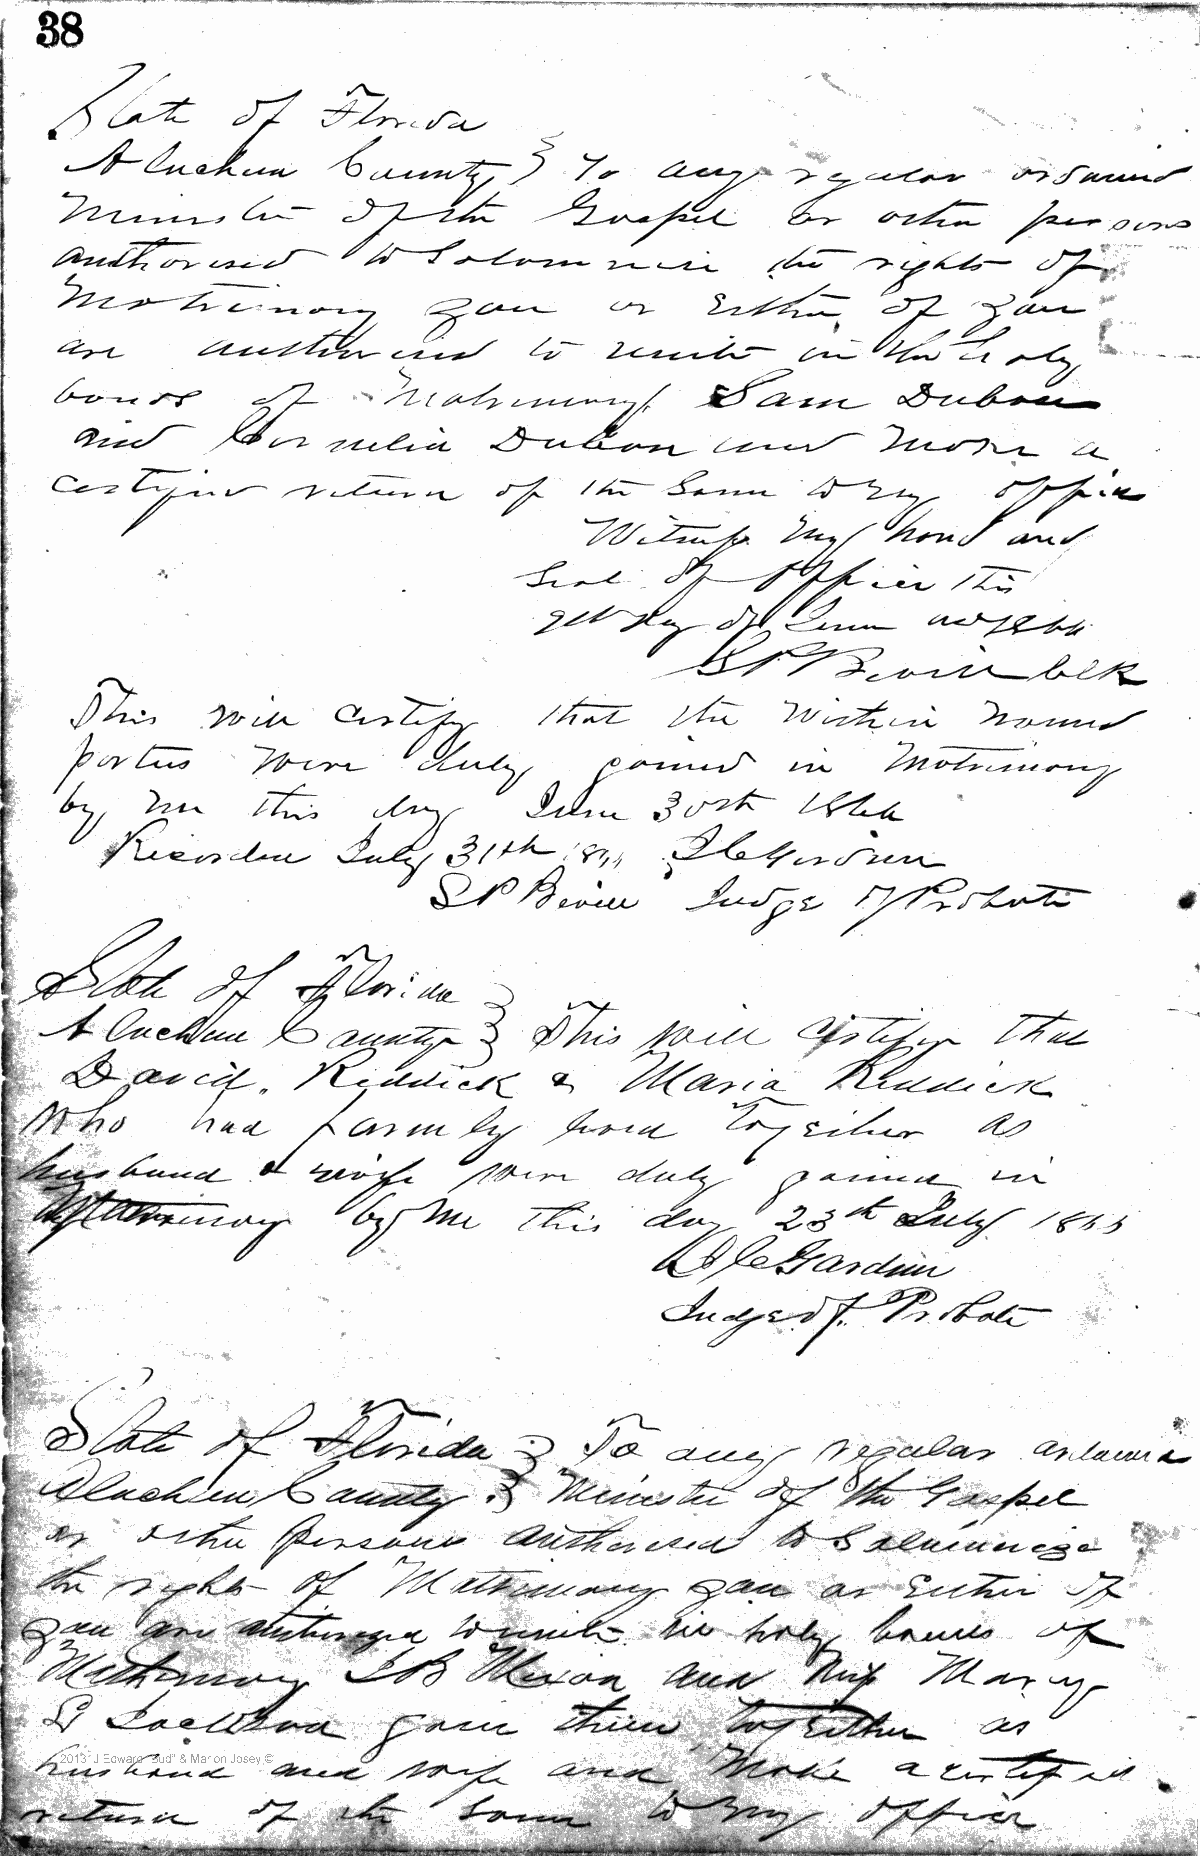 38
State of Florida
Alachua County } To any regular ordained
Minister of the Gospel or other persons
authorised to Solomnise the rights of
Matrimony you or Either of you
are authorised to unite in the Holy
bonds of Matrimony Sam Dubose
and Cornelia Dubose and make a
certified return of the Same to my office
Witness my hand and
Seal of office this
day of June AD 1866
S P Bevill Clk
This will certify that the Within named
parties were duly joined in Matrimony
by me this day June 30th 1866
Recorded July 31th 1866
S P Bevill Judge of Probate
State of Florida
Alachua County } This will certify that
David Reddick & Maria Reddick
Who had formly lived together as
husband & wife were duly joined in
Matrimony by Me this day 23th July 1866
Judge of Probate
State of Florida } To any regular ordained
Alachua County } Minister of the Gospel
or other persons authorised to Solemnize
the rights of Matrimony you or Either of
you are authorized to unite in holy bonds of
Matrimony J B Mixon and Miss Mary
E Jackson join them together as
2013 J Edward "Bud" & Marion Josey ©
husband and wife and Make a certified
return of the Same to my office